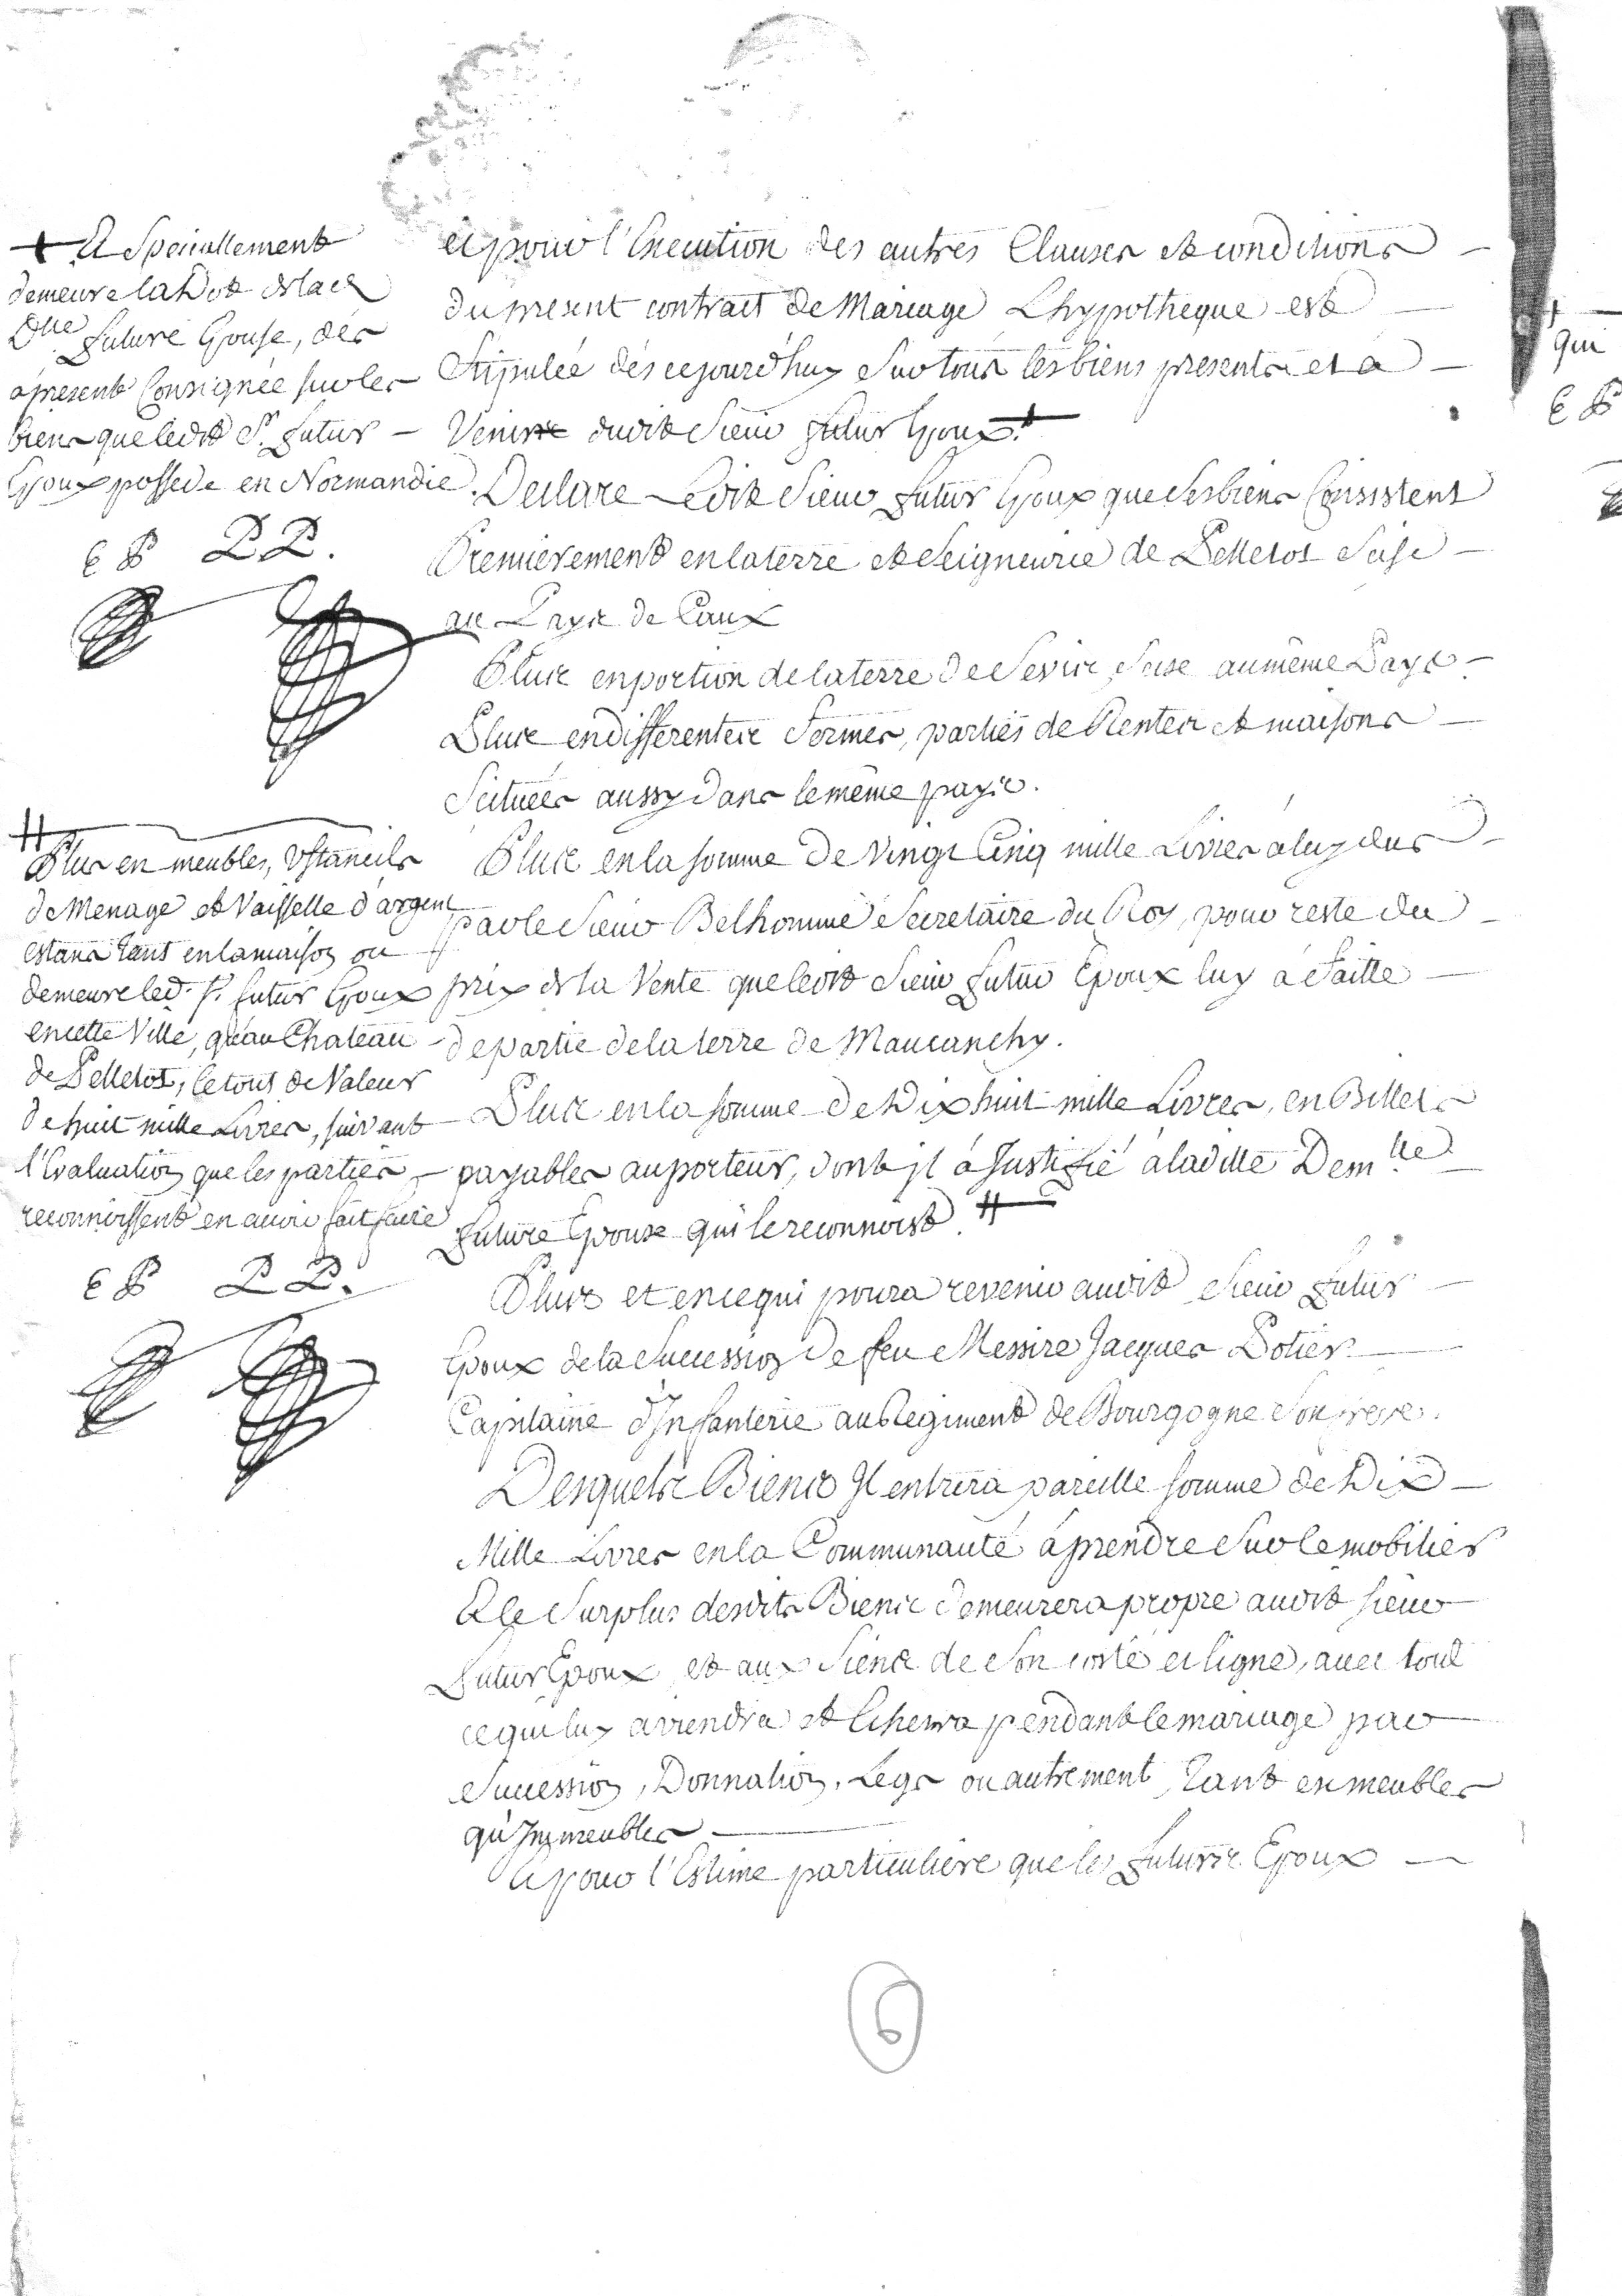 et pour l'Execution des autres Clauses et conditions
du present contrat de Mariage L'hypotheque est
Stipulée dés cejourd'huy Sur tous les biens presents et a
Venir dudit Sieur futur Epoux +
Declare Ledit Sieur futur Epoux que Ses biens Consistent
Premierement en la terre et Seigneurie de Pelletot Sise
au Pays de Caux
Plus en portion de la terre de Sevis Sise au même Pays
Plus en differentes Fermes, parties de Rentes et maisons
Scituées aussy dans le même pays.
Plus en la somme de Vingt Cinq mille Livres a luy dus
par le Sieur Belhomme Secretaire du Roy, pour reste du
prix de la Vente que ledit Sieur futur Epoux luy à faitte
de partie de la terre de Maucanchy.
Plus en la somme de Dix huit mille Livres, en Billets
payables au porteur, dont jl á Justifié á laditte Demlle
future Epouse qui le reconnoist. #
Plus et en ce qui poura revenir audit Sieur futur
Epoux de la Succession de feu Messire Jacques Potier
Capitaine d'Infanterie au Regiment de Bourgogne Son frere.
Desquels Biens Il entrera pareille somme de Dix
Mille Livres en la Communauté á prendre Sur le mobilier
Et le Surplus desdits Biens demeurera propre audit sieur
futur Epoux et aux Siens de Son costé et ligne, avec tout
ce qui luy aviendra et Echerra pendant le mariage par
Succession, Donnation, Legs ou autrement, Tant en meubles
qu'Immeubles
Et pour l'Estime particuliere que les futurs Epoux
+ Et Speciallement
demeure la Dot de lad.
Dlle future Epouse, dés
á present Consignée sur les
biens que ledit Sr. futur
Epoux possede en Normandie.
E P P P.
# Plus en meubles, Vstancils
de Menage et Vaisselle d'argent
estans tant en la maison ou
demeure led. Sr. futur Epoux
en cette Ville, qu'au Chateau
de Pelletot, le tout de Valeur
de huit mille Livres, suivant
l'Evaluation que les parties
reconnoissent en avoir fait faire
E P P P.
+
qui
E P
6